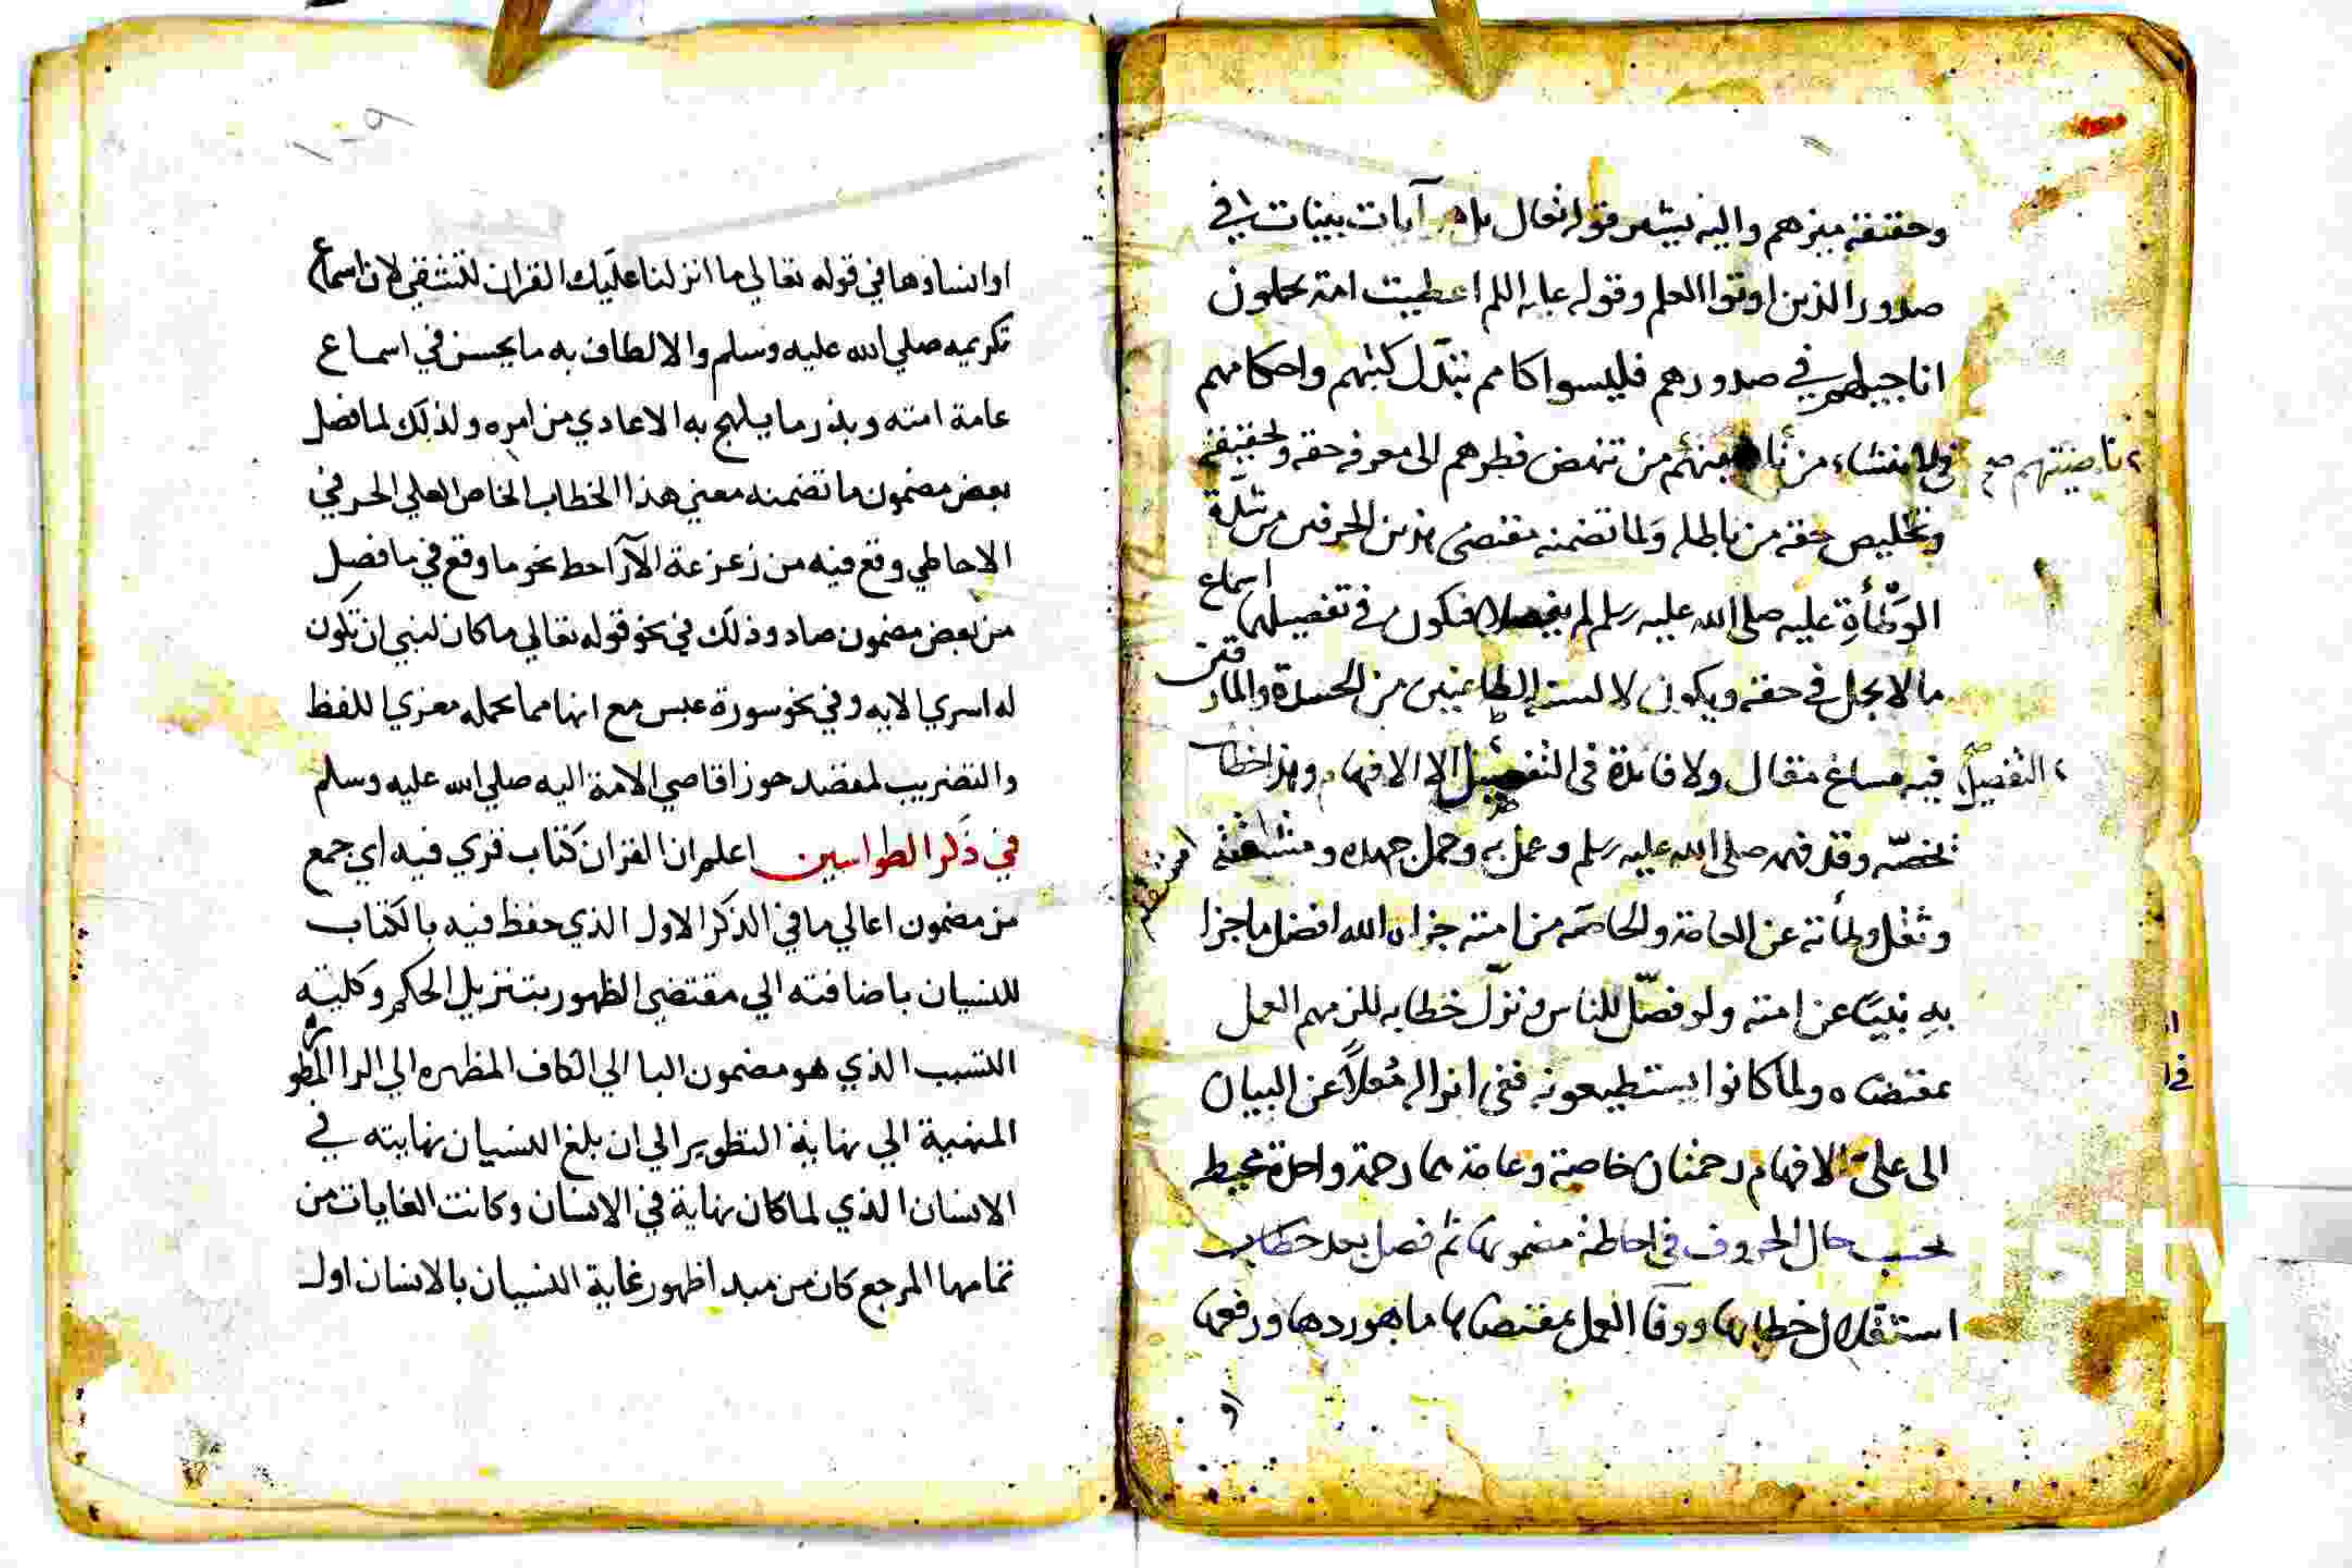 وحقيقة ميزهم واليه يشير قوله تعالى بل هو آيات بينات في
صدور الذين اوتوا العلم وقوله عليه السلم اعطيت امته يحملون
اناجيلهم في صدورهم فليسوا كامم تبدل كتبهم واحكامهم
من تنهض فطرهم الى معرفة حقه ولحقيقة
ناصيتهم صح
وتخليص حقه من باطله ولما تضمنه مقتضى هذين الحرفين من شدة
الوطأة عليه صلى الله عليه وسلم لم يفصلا فيكون في تفصيلهما اسماع
ما لا يجمل في حقه ويكون لالسنة الطاعنين من الحسدة والمارقين
فيه مساغ مقال ولا فائدة في التفصيل الا الافهام وهذا خطاب
التفصيل
تخصه وقد فهمه صلى الله عليه وسلم وعمل به وحمل جهده ومشقته
وثقل وطأته عن العامة والخاصة من امته جزاه الله افضل ما جزا
به نبيا عن امته ولو فصل للناس ونزل خطابه للزمهم العمل
بمقتضاه ولما كانوا يستطيعونه ففي انزاله مُعلاً عن البيان
الى على الافهام رحمتان خاصة وعامة هما رحمة واحدة محيطه
بحسب حال الحروف في احاطة مضمونها ثم فصل بعد خطاب
استقلال خطابها ووفا العمل بمقتضاها ما هو ردها ورفعها
او
١٠٩
او انساؤها في قوله تعالي ما انزلنا عليك القران لتشقي لان اسماع
تكريمه صلي الله عليه وسلم والالطاف به ما يحسن في اسماع
عامة امته ويذر ما يلهج به الاعادي من امره ولذلك لما فصل
بعض مضمون ما تضمنه معني هذا الخطاب الخاص العلي الحرفي
الاحاطي وقع فيه من زعزعة الآراحط نحو ما وقع في ما فصل
من بعض مضمون صاد وذلك في نحو قوله تعالي ما كان لنبي ان تكون
له اسري الايه وفي نحو سورة عبس مع انها مما يحمله مغزي اللفظ
والتضريب لمقصد حوز اقاصي الامة اليه صلي الله عليه وسلم
في ذكر الطواسين اعلم ان القران كتاب قري فيه اي جمع
من مضمون اعالي ما في الذكر الاول الذي حفظ فيه بالكتاب
للنسيان باضافته الي مقتضي الظهور بتنزيل الحكم وكليته
التسبب الذي هو مضمون البا الي الكاف المظهره الي الرا المطوره
المنهية الي نهاية التطوير الي ان بلغ النسيان نهايته في
الانسان الذي لما كان نهاية في الانسان وكانت الغايات من
تمامها المرجع كان من مبدا ظهور غاية النسيان بالانسان اول